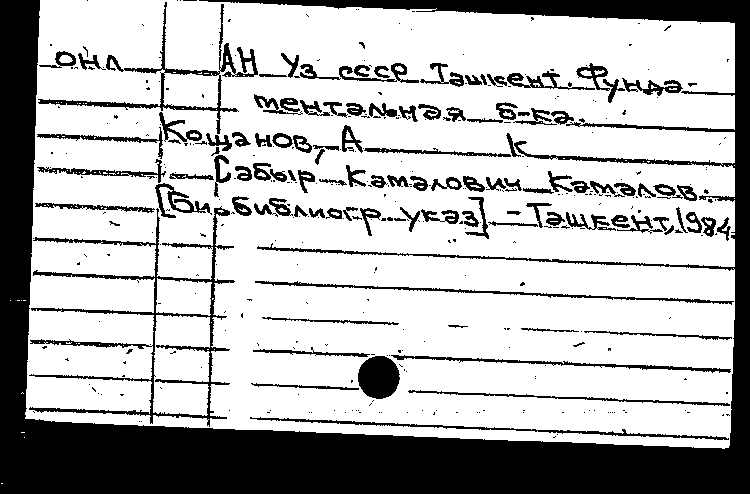 ОНЛ АН Уз ССР. Ташкент. Фунда-
ментальная б-ка.
Кощанов, А К
Сабыр Камалович Камалов:
[Биобиблиогр. указ] - Ташкент, 1984.